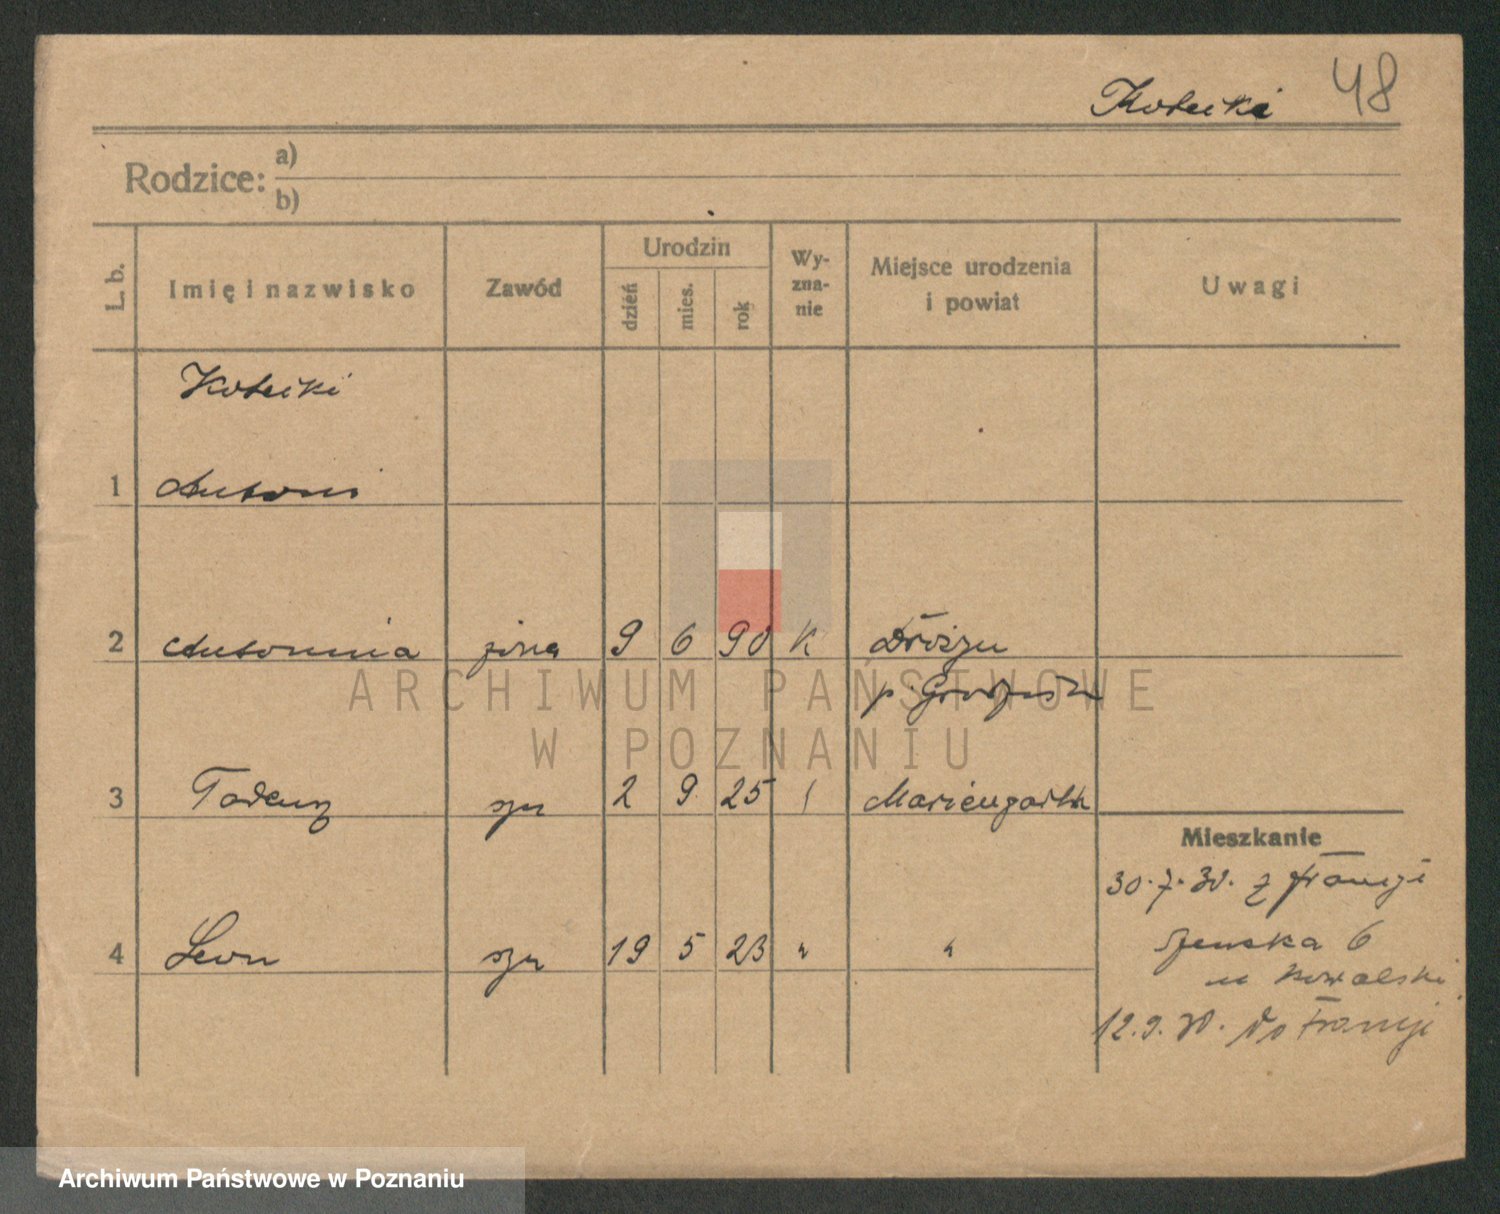 Kotecki 48
Rodzice: a)
b)
L. b. Imię i nazwisko Zawód Urodzin dzień mies. rok Wy-zna-nie Miejsce urodzenia i powiat Uwagi
Kotecki
1 Antoni
2 Antonina żona 9 6 90 K Dróżyn
p.
3 Tadeusz syn 2 9 25 Mariengarten
4 Leon syn 19 5 23 " "
Mieszkanie
30.7.30. z Francji
6
u Kowalski
12.9.30. do Francji
ARCHIWUM PAŃSTWOWE
W POZNANIU
Archiwum Państwowe w Poznaniu